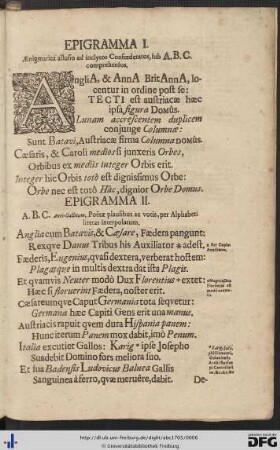 EPIGRAMMA I.
Ænigmatica allusio ad inclytos Confœderatos, sub A.B.C.
comprehensos.
AngliA, & AnnA BritAnnA, lo-
centur in ordine post se:
TECTI est austriacæ hæc
ipsa figura DOMÛS.
Lunam accrescentem duplicem
conjunge Columnæ:
Sunt Batavi, Austriacæ firma COLUMNA DOMÛS.
Cæsaris, & Caroli medio si junxeris Orbes,
Orbibus ex mediis integer Orbis erit.
Integer hic Orbis totô est dignissimus Orbe:
Orbe nec est totô Hâc, dignior Orbe Domus.
EPIGRAMMA II.
A. B. C. Anti-Gallicum, Poëtæ plausibus ac votis, per Alphabeti
literas interpolatum.
Anglia cum Batavis, & Cæsare, Fœdera pangunt:
Rexque Danus Tribus his Auxiliator * adest.
Fœderis, Eugenius, quasi dextera, verberat hostem:
Plagasque in multis dextra dat ista Plagis.
Et quamvis Neuter modò Dux Florentius * extet:
Hæc si floruerint Fœdera, noster erit.
Cæsareumque Caput Germania tota sequetur:
Germana hæc Capiti Gens erit una manus.
Austriacis rapuit quem dura Hispania panem:
Hunc iterum Panem mox dabit, imò Penum.
Italia excutiet Gallos: Karig * ipse Josepho
Suadebit Domino fors meliora suo.
Et sua Badensis Ludovicus Balnea Gallis
Sanguinea à ferro, quæ meruêre, dabit.
De-
http://dl.ub.uni-freiburg.de/diglit/abc1703/0006
© Universitätsbibliothek Freiburg